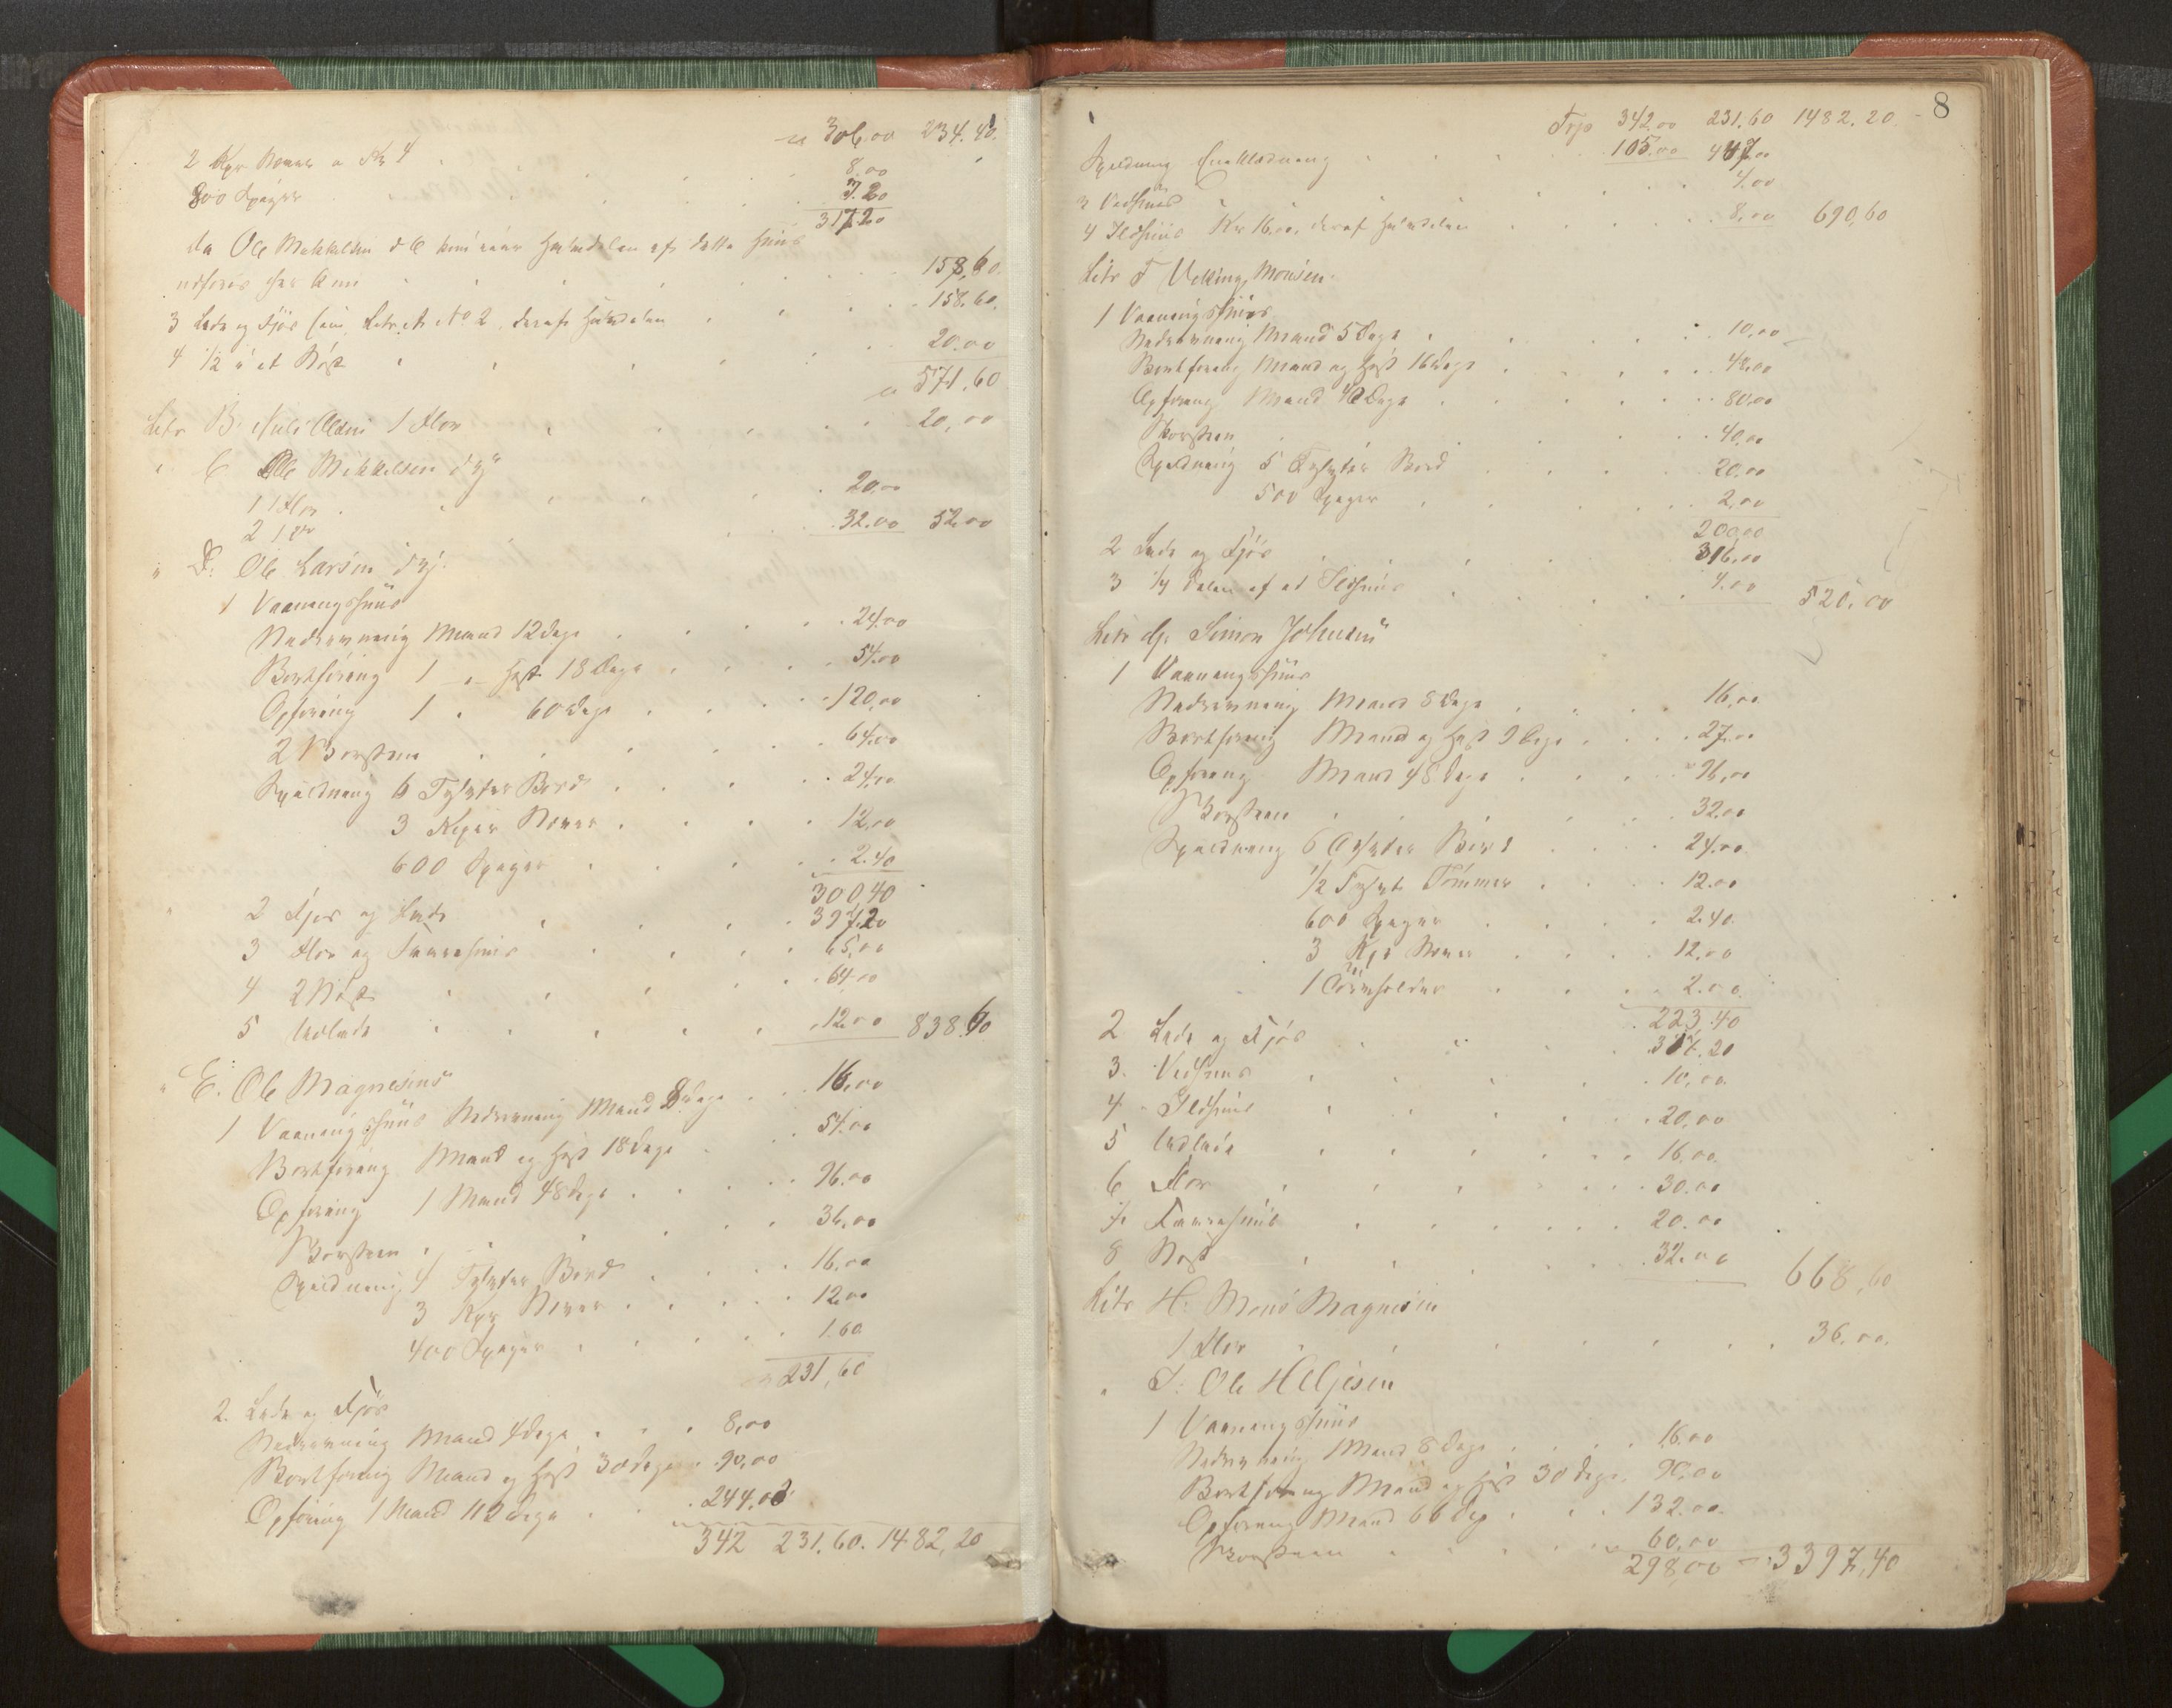 306,00 234.40.
2 Kpr Næver a Kr 4 8.00
800 Spiger 3.20
317.20
da Ole Mikkelsen kun eier Halvdelen af dette Huus
udføres her kun 158,60.
3 Lade og Fjøs som Litr. A No 2, deraf Halvdelen 158.60.
4 1/2 i et Nøst 20.00
571.60
Litr B. Nils Olsen 1 Flor 20,00
" C Ole Mikkelsen
1 Flor 20,00
2 32.00 52,00
" D: Ole Larsen
1 Vaaningshuus
Nedrivning Mand 12 Dage 24.00
Bortføring 1 " Hest 18 Dage 54.00
Opføring 1 " 60 Dage 120,00
2 Skorsteen 64.00
Spildning 6 Tylvter Bord 24,00
3 Kiper Næver 12,00
600 Spiger 2.40
300,40
2 Fjøs og Lade 397.20
3 Flor og 65,00
4 2 Nøst 64.00
5 Udlade 12.00 838.60
" E: Ole Magnesens
1 Vaaningshuus Nedrivning Mand 8 Dage 16,00
Bortføring Mand og Hest 18 Dage 54.00
Opføring 1 Mand 48 Dage 96.00
Skorsteen 36,00
Spildning 4 Tylvter Bord 16.00
3 Kpr Næver 12.00
400 Spiger 1.60
231,60
2. Lade og Fjøs
Nedrivning Mand 4 Dage 8,00
Bortføring Mand og Hest 30 Dage 90,00
Opføring 1 Mand 112 Dage 244,00
342 231.60. 1482,20
8
Trp 342.00 231.60 1482.20.
Spildning 105.00 447.00
3 Vedhuus 4.00
4 Ildhuus Kr 16,00, deraf Halvdelen 8,00 690,60
Litr F Monsen.
1 Vaaningshuus
Nedrivning Mand 5 Dage 10,00
Bortføring Mand og Hest 16 Dage 48,00
Opføring Mand 40 Dage 80,00
Skorsteen 40,00
Spildning 5 Tylvter Bord 20,00
500 Spiger 2,00
200,00
2 Lade og Fjøs 316,00
3 1/4 Delen af et Ildhuus 4.00 520,00
Litr G. Simon Johnsen
1 Vaaningshuus
Nedrivning Mand 8 Dage 16,00
Bortføring Mand og Hest 9 Dage 27,00
Opføring Mand 48 Dage 96,00
Skorsteen 32.00
Spildning 6 Tylvter Bord 24.00
1/2 Tylvt Tømmer 12.00
600 Spiger 2.40.
3 Kpr Næver 12,00
1 2.00.
223.40
2 Lade og Fjøs 317.20
3. Vedhuus 10,00
4 Ildhuus 20,00
5 Udlade 16.00
6 Flor 30.00
7. 20.00
8 Nøst 32.00 668,60
Litr H: Mons Magnesen
1 Flor 36.00.
" I: Ole Helgesen
1 Vaaningshuus
Nedrivning Mand 8 Dage 16.00
Bortføring Mand og Hest 30 Dage 90,00
Opføring Mand 66 Dage 132.00.
Skorsteen 60,00
298,00 3397,40